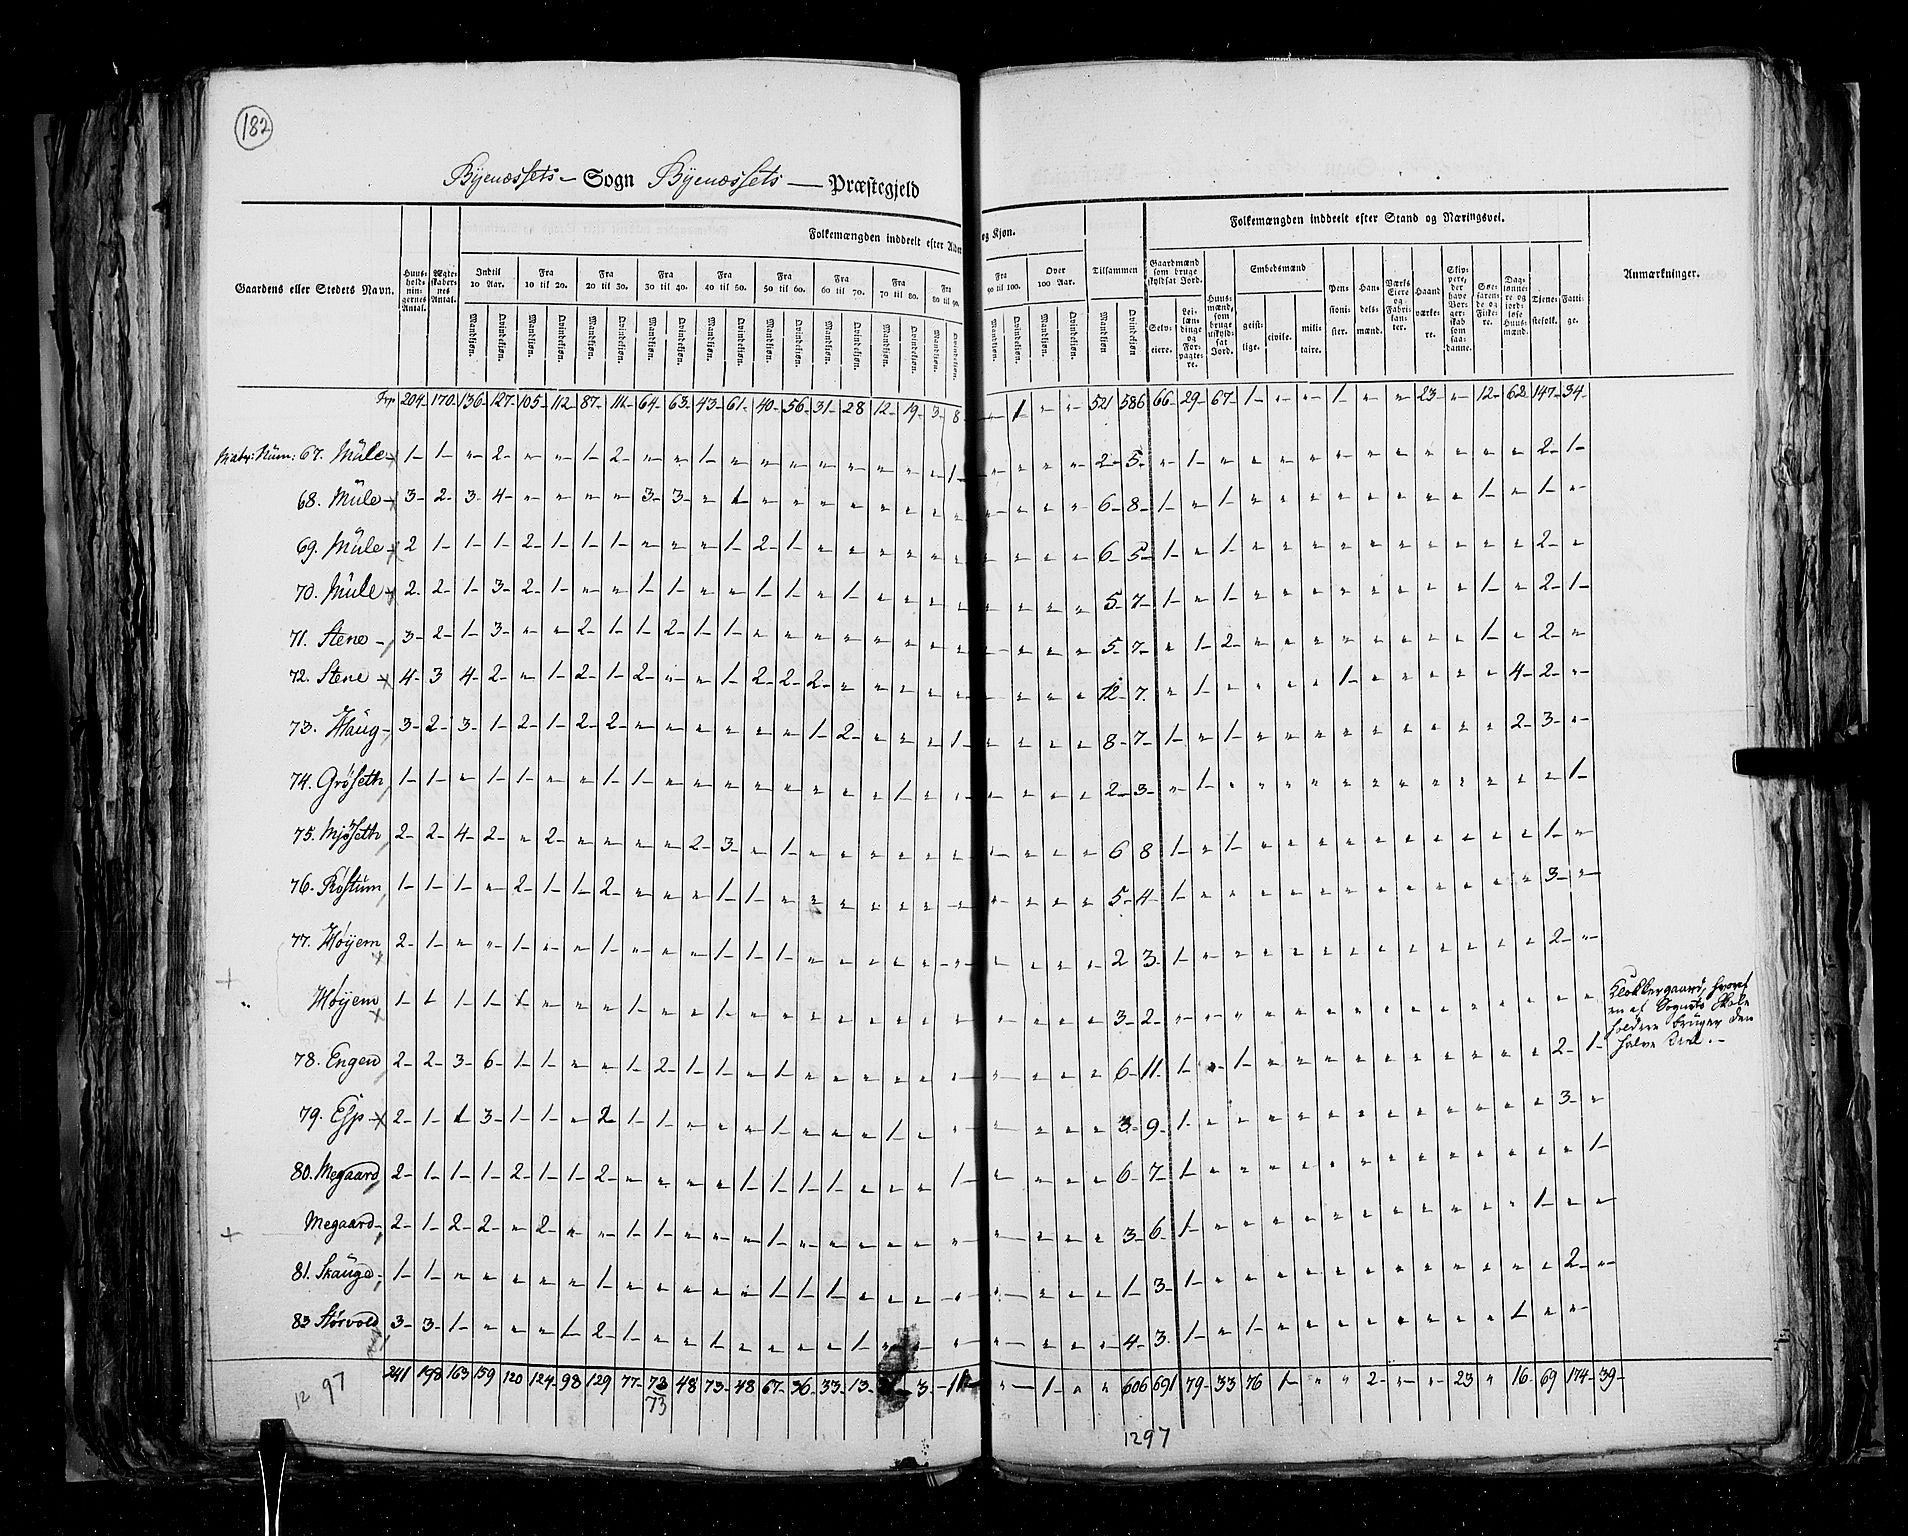 182
Byenæssets Sogn Byenæssets Præstegjeld
Folkemængden inddeelt efter Alder og Kjøn.
Folkemængden inddeelt efter Stand og Næringsvei.
Gaardens eller Stedets Navn.
Huusholdningernes Antal.
Ægteskabernes Antal.
Indtil 10 Aar.
Fra 10 til 20.
Fra 20 til 30.
Fra 30 til 40.
Fra 40 til 50.
Fra 50 til 60.
Fra 60 til 70.
Fra 70 til 80.
Fra 80 til 90.
Fra 90 til 100.
Over 100 Aar.
Tilsammen
Gaardmænd som bruge skyldsat Jord.
Selveiere.
Leilændinge og Forpagtere.
Huusmænd, som bruge uskyldsat Jord.
Embedsmænd
geistlige.
civile.
militaire.
Pensionister.
Handelsmænd.
Værks Eiere og Fabrikanter.
Haandværkere.
Skippere, der have Borgerskab som saadanne.
Søefarende og Fiskere.
Daglønnere og jordløse Huusmænd.
Tjenestefolk.
Fattige.
Anmærkninger.
Mandkjøn. Qvindekjøn.
204 170 136 127 105 112 87 111 64 63 43 61 40 56 31 28 12 19 3 8 " 1 " " 521 586 66 29 67 1 " " 1 " " 23 " 12 62 147 34
67. Müle 1 1 " 2 " " 1 2 " " 1 " " " " " " " " 1 " " " " 2 5 " 1 " " " " " " " " " " " 2 1
68. Müle 3 2 3 4 " " " " 3 3 " 1 " " " " " " " " " " " " 6 8 1 " 1 " " " " " " " " 1 " 1 "
69. Müle 2 1 1 1 2 1 1 1 " " " 1 2 1 " " " " " " " " " " 6 5 1 " 1 " " " " " " " " " " 2 "
70. Müle 2 2 1 3 2 1 " " 1 1 " " 1 1 " 1 " " " " " " " " 5 7 1 " 1 " " " " " " " " 1 " 2 1
71. Stene 3 2 1 3 " " 2 1 1 2 1 1 " " " " " " " " " " " " 5 7 " 1 2 " " " " " " " " 1 " 2 "
72. Stene 4 3 4 2 " 1 2 1 2 " " 1 2 2 2 " " " " " " " " " 12 7 " 1 " " " " 1 " " " " " 4 2 "
73. Haug 3 2 3 1 2 1 2 2 " " " " " " 1 2 " " " 1 " " " " 8 7 1 " 1 " " " " " " " " " 2 3 "
74. Grøseth 1 1 " 1 1 " " 1 1 " " " " " " " 1 " " " " " " " 2 3 " 1 " " " " " " " " " " " " 1
75. Mjøseth 2 2 4 2 " 2 " " " " 2 3 " 1 " " " " " " " " " " 6 8 1 " 1 " " " " " " " " " " 1 "
76. Røstum 1 1 1 " 2 1 1 2 " " " 1 1 " " " " " " " " " " " 5 4 1 " " " " " " " " " " " " 3 "
77. Høyem 2 1 " " 1 " " 1 " " " 1 1 1 " " " " " " " " " " 2 3 1 " " " " " " " " " " " " 2 "
Høyem 1 1 1 1 1 " " " 1 " " 1 " " " " " " " " " " " " 3 2 " " " " " " " " " " " " " " "
Klokkergaard, hvoraf
en af Sognets Skole
holdere bruger den
halve Deel.
78. Engen 2 2 3 6 1 1 " " 1 2 1 1 " 1 " " " " " " " " " " 6 11 1 " 1 " " " " " " " " " " 2 1
79. Esp 2 1 1 3 1 1 " 2 1 1 " " " 1 " " " 1 " " " " " " 3 9 1 " " " " " " " " " " " " 3 "
80. Megaard 2 1 1 1 2 1 1 2 " " " " 1 1 1 1 " " " 1 " " " " 6 7 1 " " " " " " " " " " " " " 1
Megaard 2 1 2 2 " 2 " " 1 1 " " " 1 " " " " " " " " " " 3 6 1 " " " " " " " " " " " 1 " "
81. Skauge 1 1 " " " " " 1 " " " " " 1 1 1 " " " " " " " " 1 3 1 " " " " " " " " " " " " 2 "
83 Størvold 3 3 1 " " " 1 2 1 " " 1 " " " " 1 " " " " " " " 4 3 1 " 1 " " " " " " " " " 1 " "
241 198 163 159 120 124 98 129 77 73 48 73 48 67 36 33 13 3 11 " 1 " " 606 691 79 33 76 1 " " 2 " " 23 " 16 69 174 39
73
12 97
1297